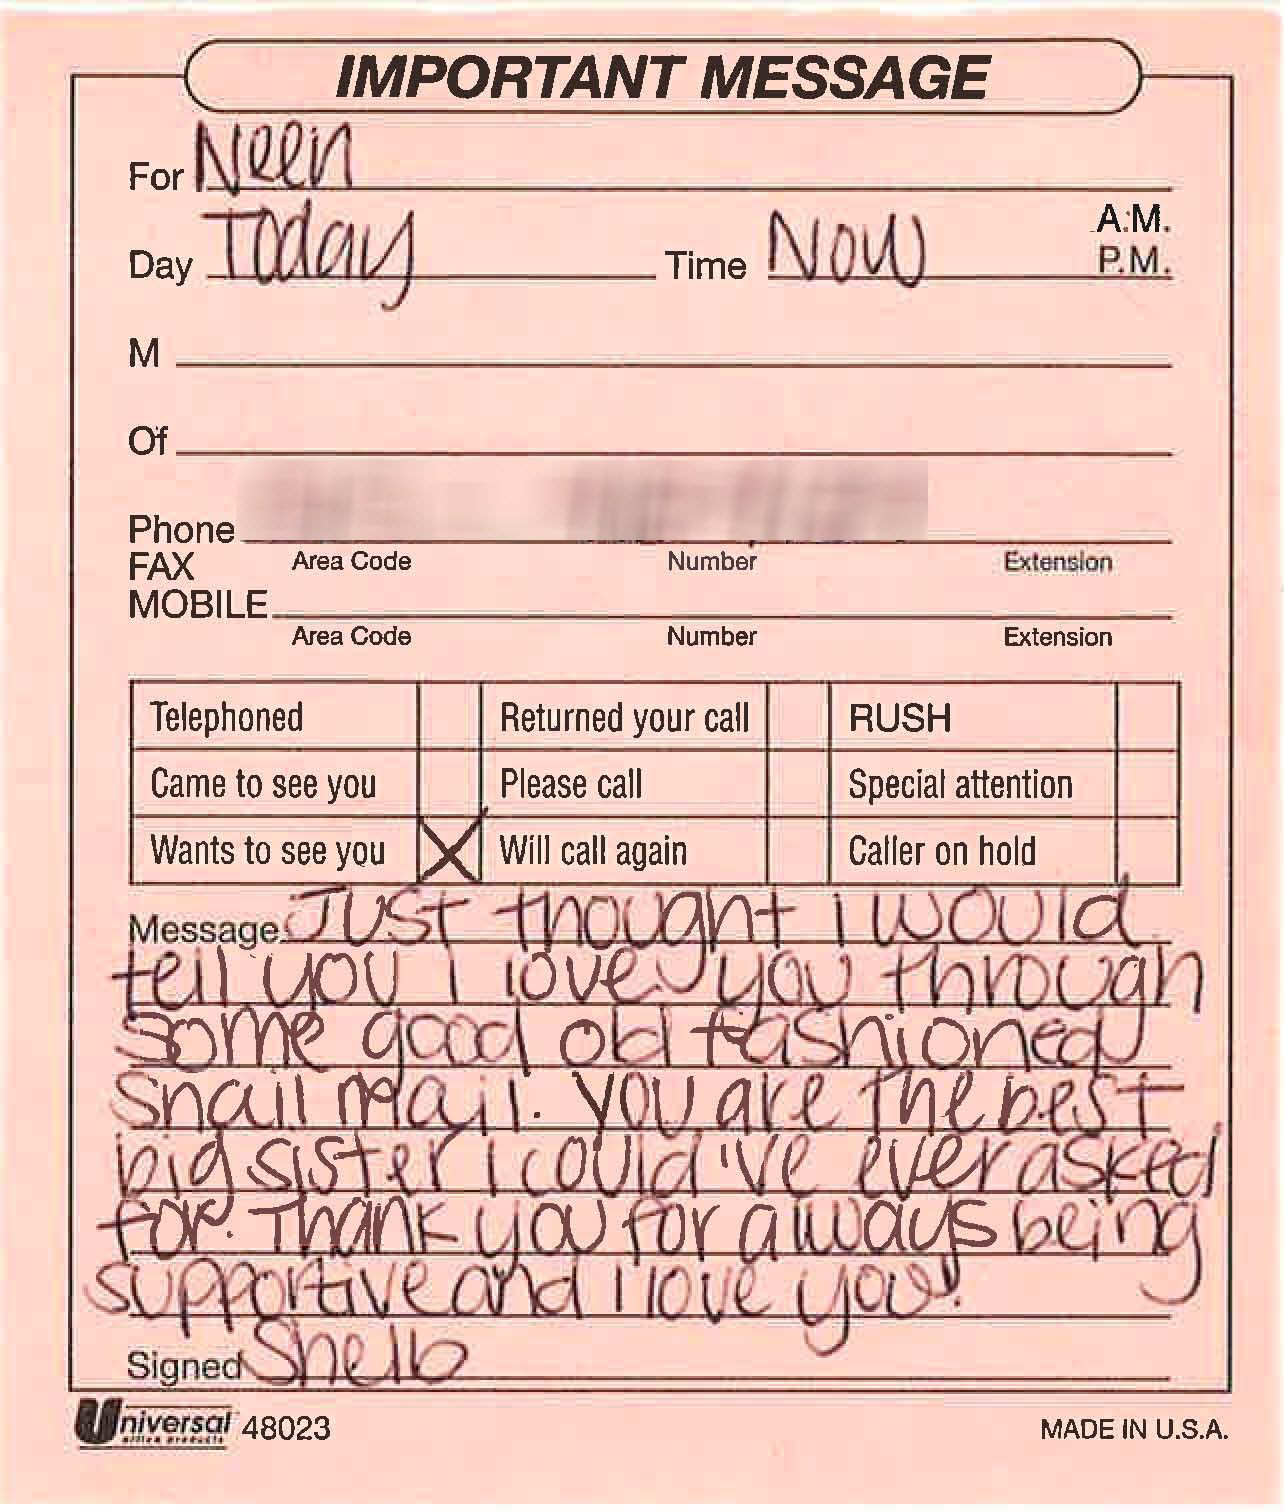 IMPORTANT MESSAGE
For Neen
Day Today Time Now A.M.
P.M.
M
Of
Phone
Area Code Number Extension
FAX
MOBILE
Area Code Number Extension
Telephoned Returned your call RUSH
Came to see you Please call Special attention
Wants to see you X Will call again Caller on hold
Message Just thought i would
tell you I love you through
some good old fashioned
snail mail. You are the best
big sister I could've ever asked
for. Thank you for always being
supportive and I love you!
Signed Shelb
Universal 48023 MADE IN U.S.A.
office products